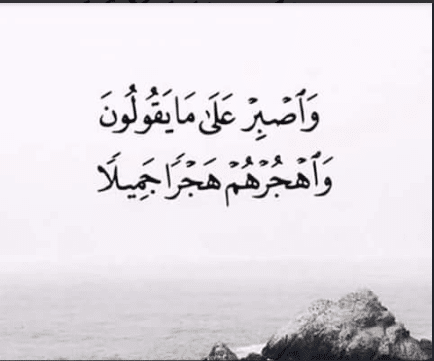 وَٱصْبِرْ عَلَىٰ مَا يَقُولُونَ
وَٱهْجُرْهُمْ هَجْرًا جَمِيلًا